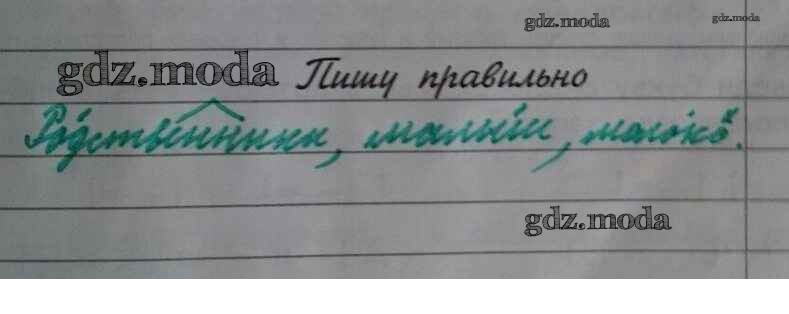 gdz.moda
gdz.moda
gdz.moda Пишу правильно
Родственники, малыши, молоко.
gdz.moda